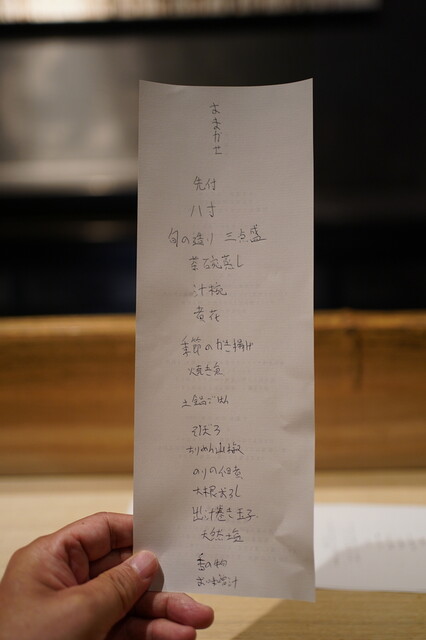 おまかせ
先付
八寸
旬の造り 三点盛
茶碗蒸し
汁椀
黄花
季節のかき揚げ
焼き魚
土鍋ごはん
とろろ
ちりめん山椒
のりの佃煮
大根おろし
出汁巻き玉子
天然塩
香の物
お味噌汁